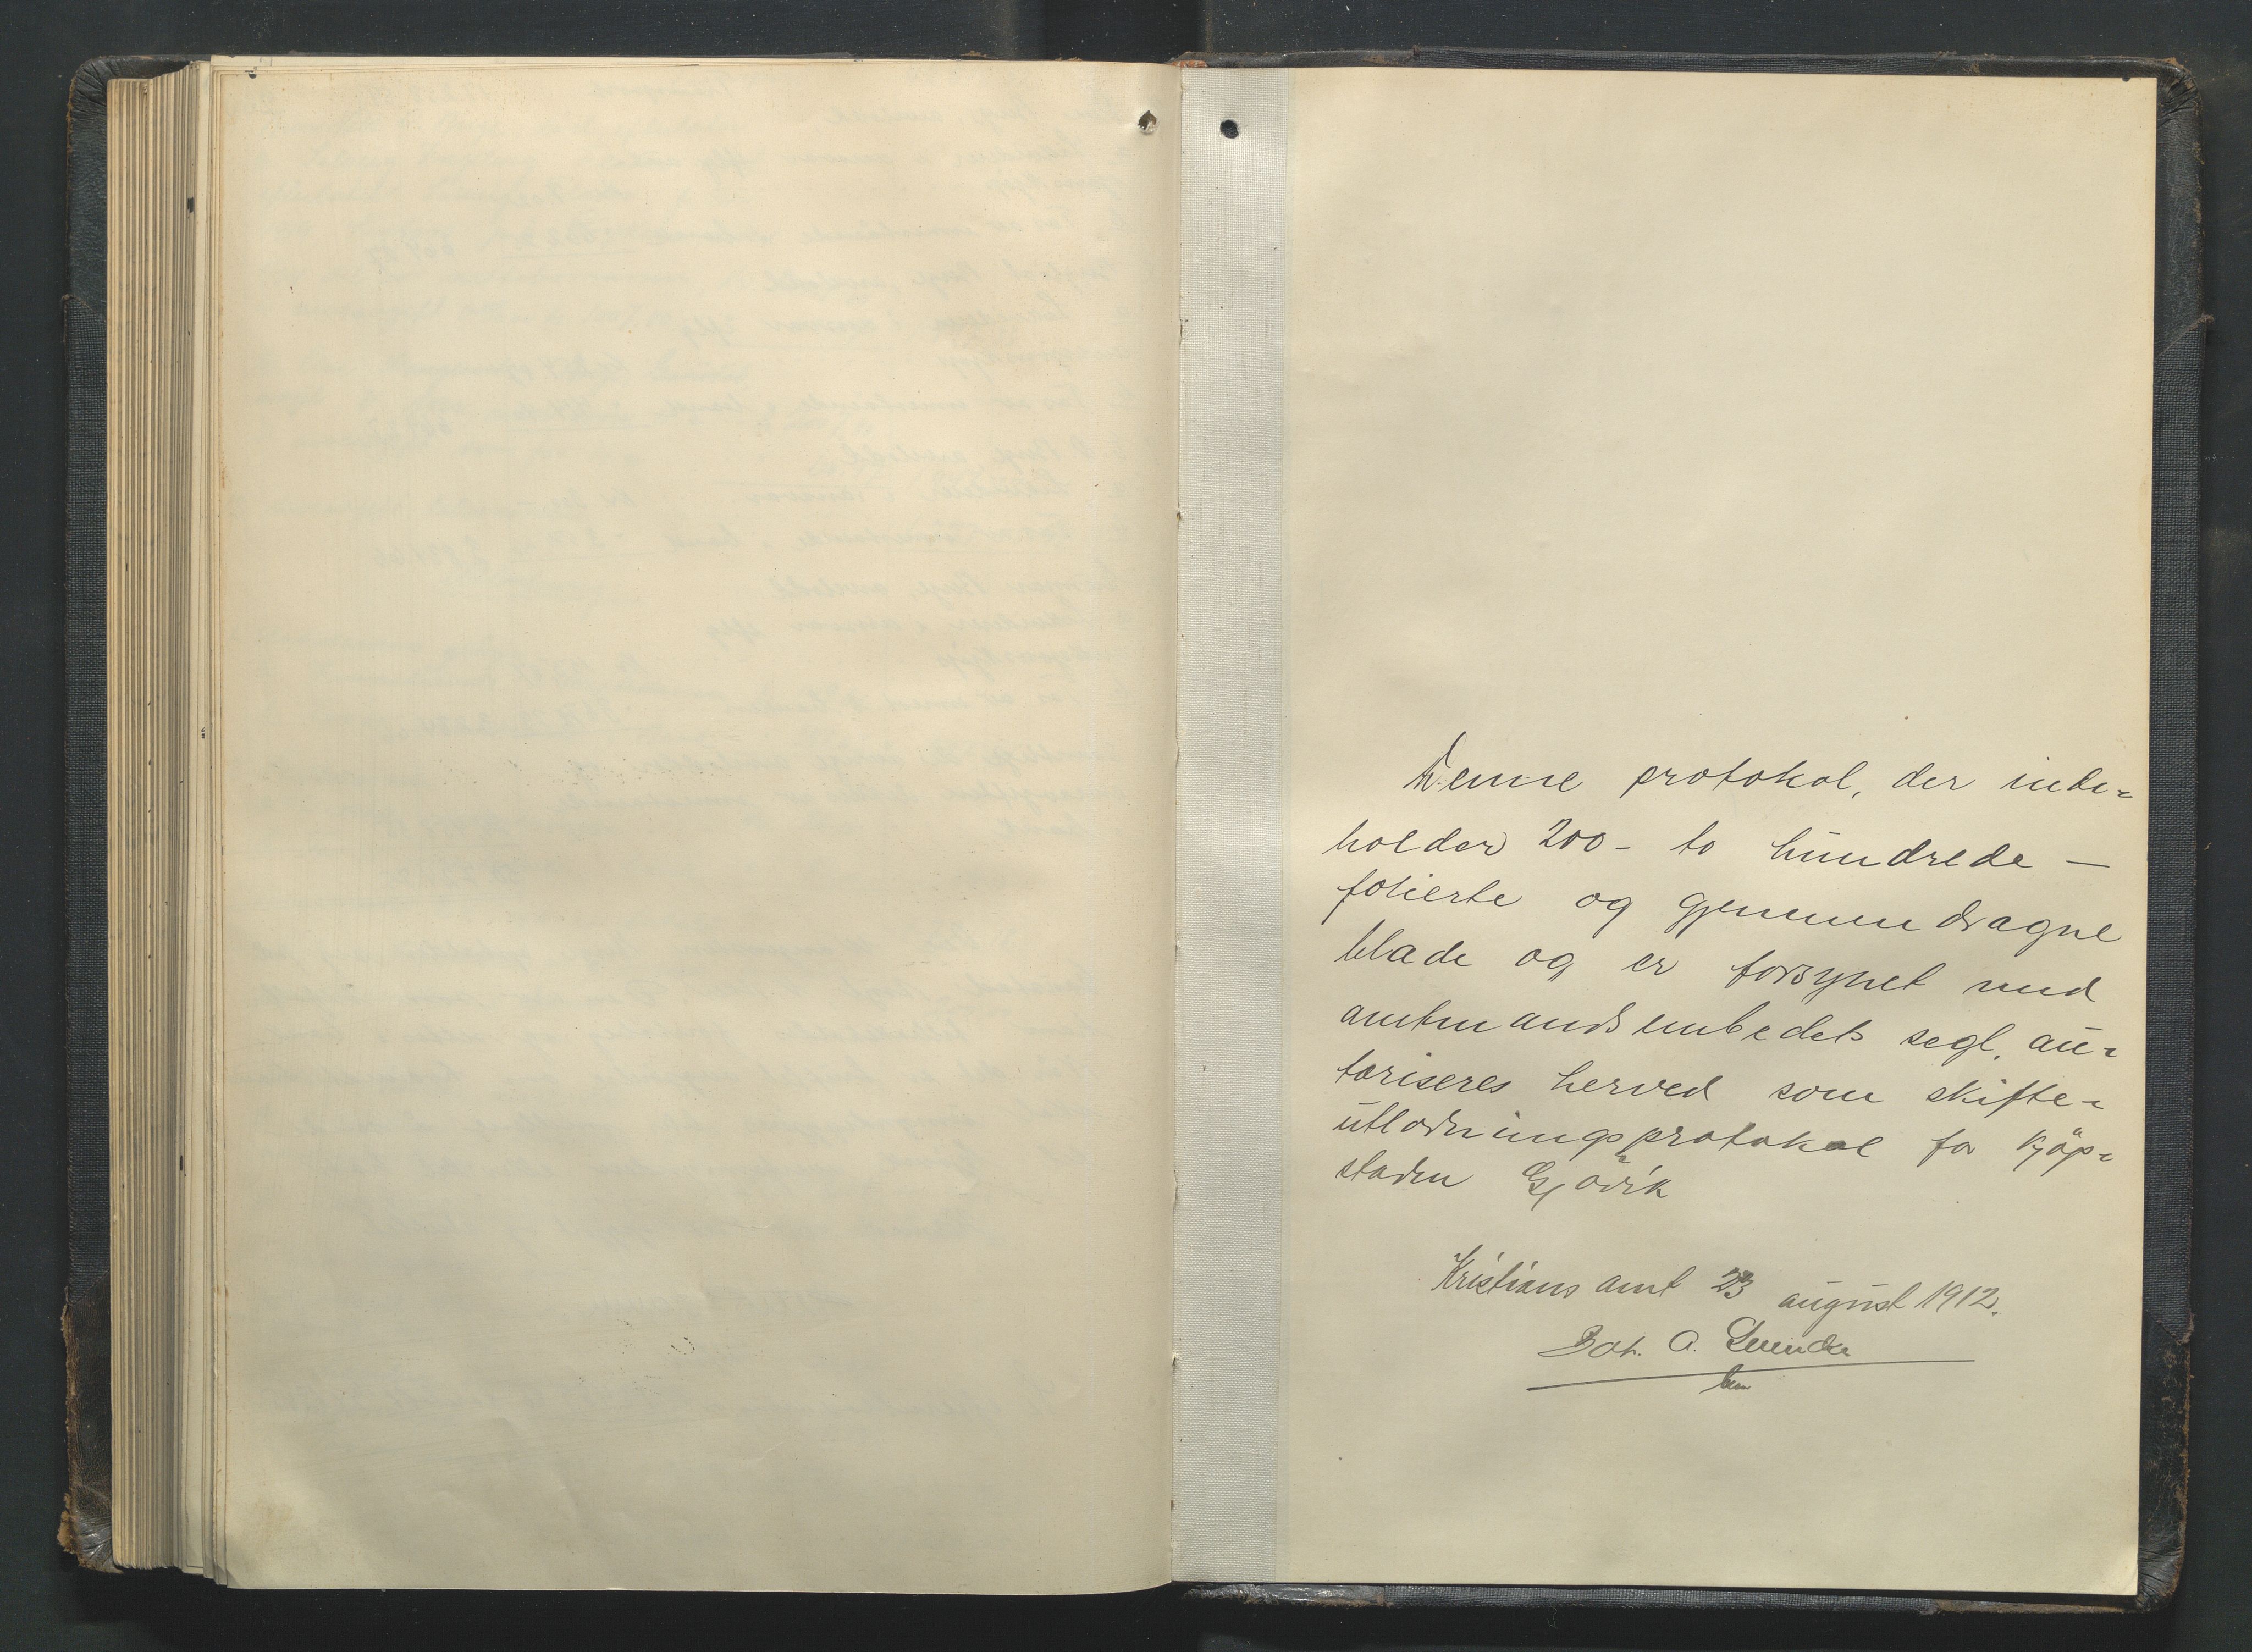 Denne protokol, der inde-
holder 200 - to hundrede -
folierte og gjennemdragne
blade og er forsynet med
amtmandsembedets segl, au-
toriseres herved som skifte-
utlodningsprotokol for kjøp-
staden Gjøvik
Kristians amt 23 august 1912.
A.